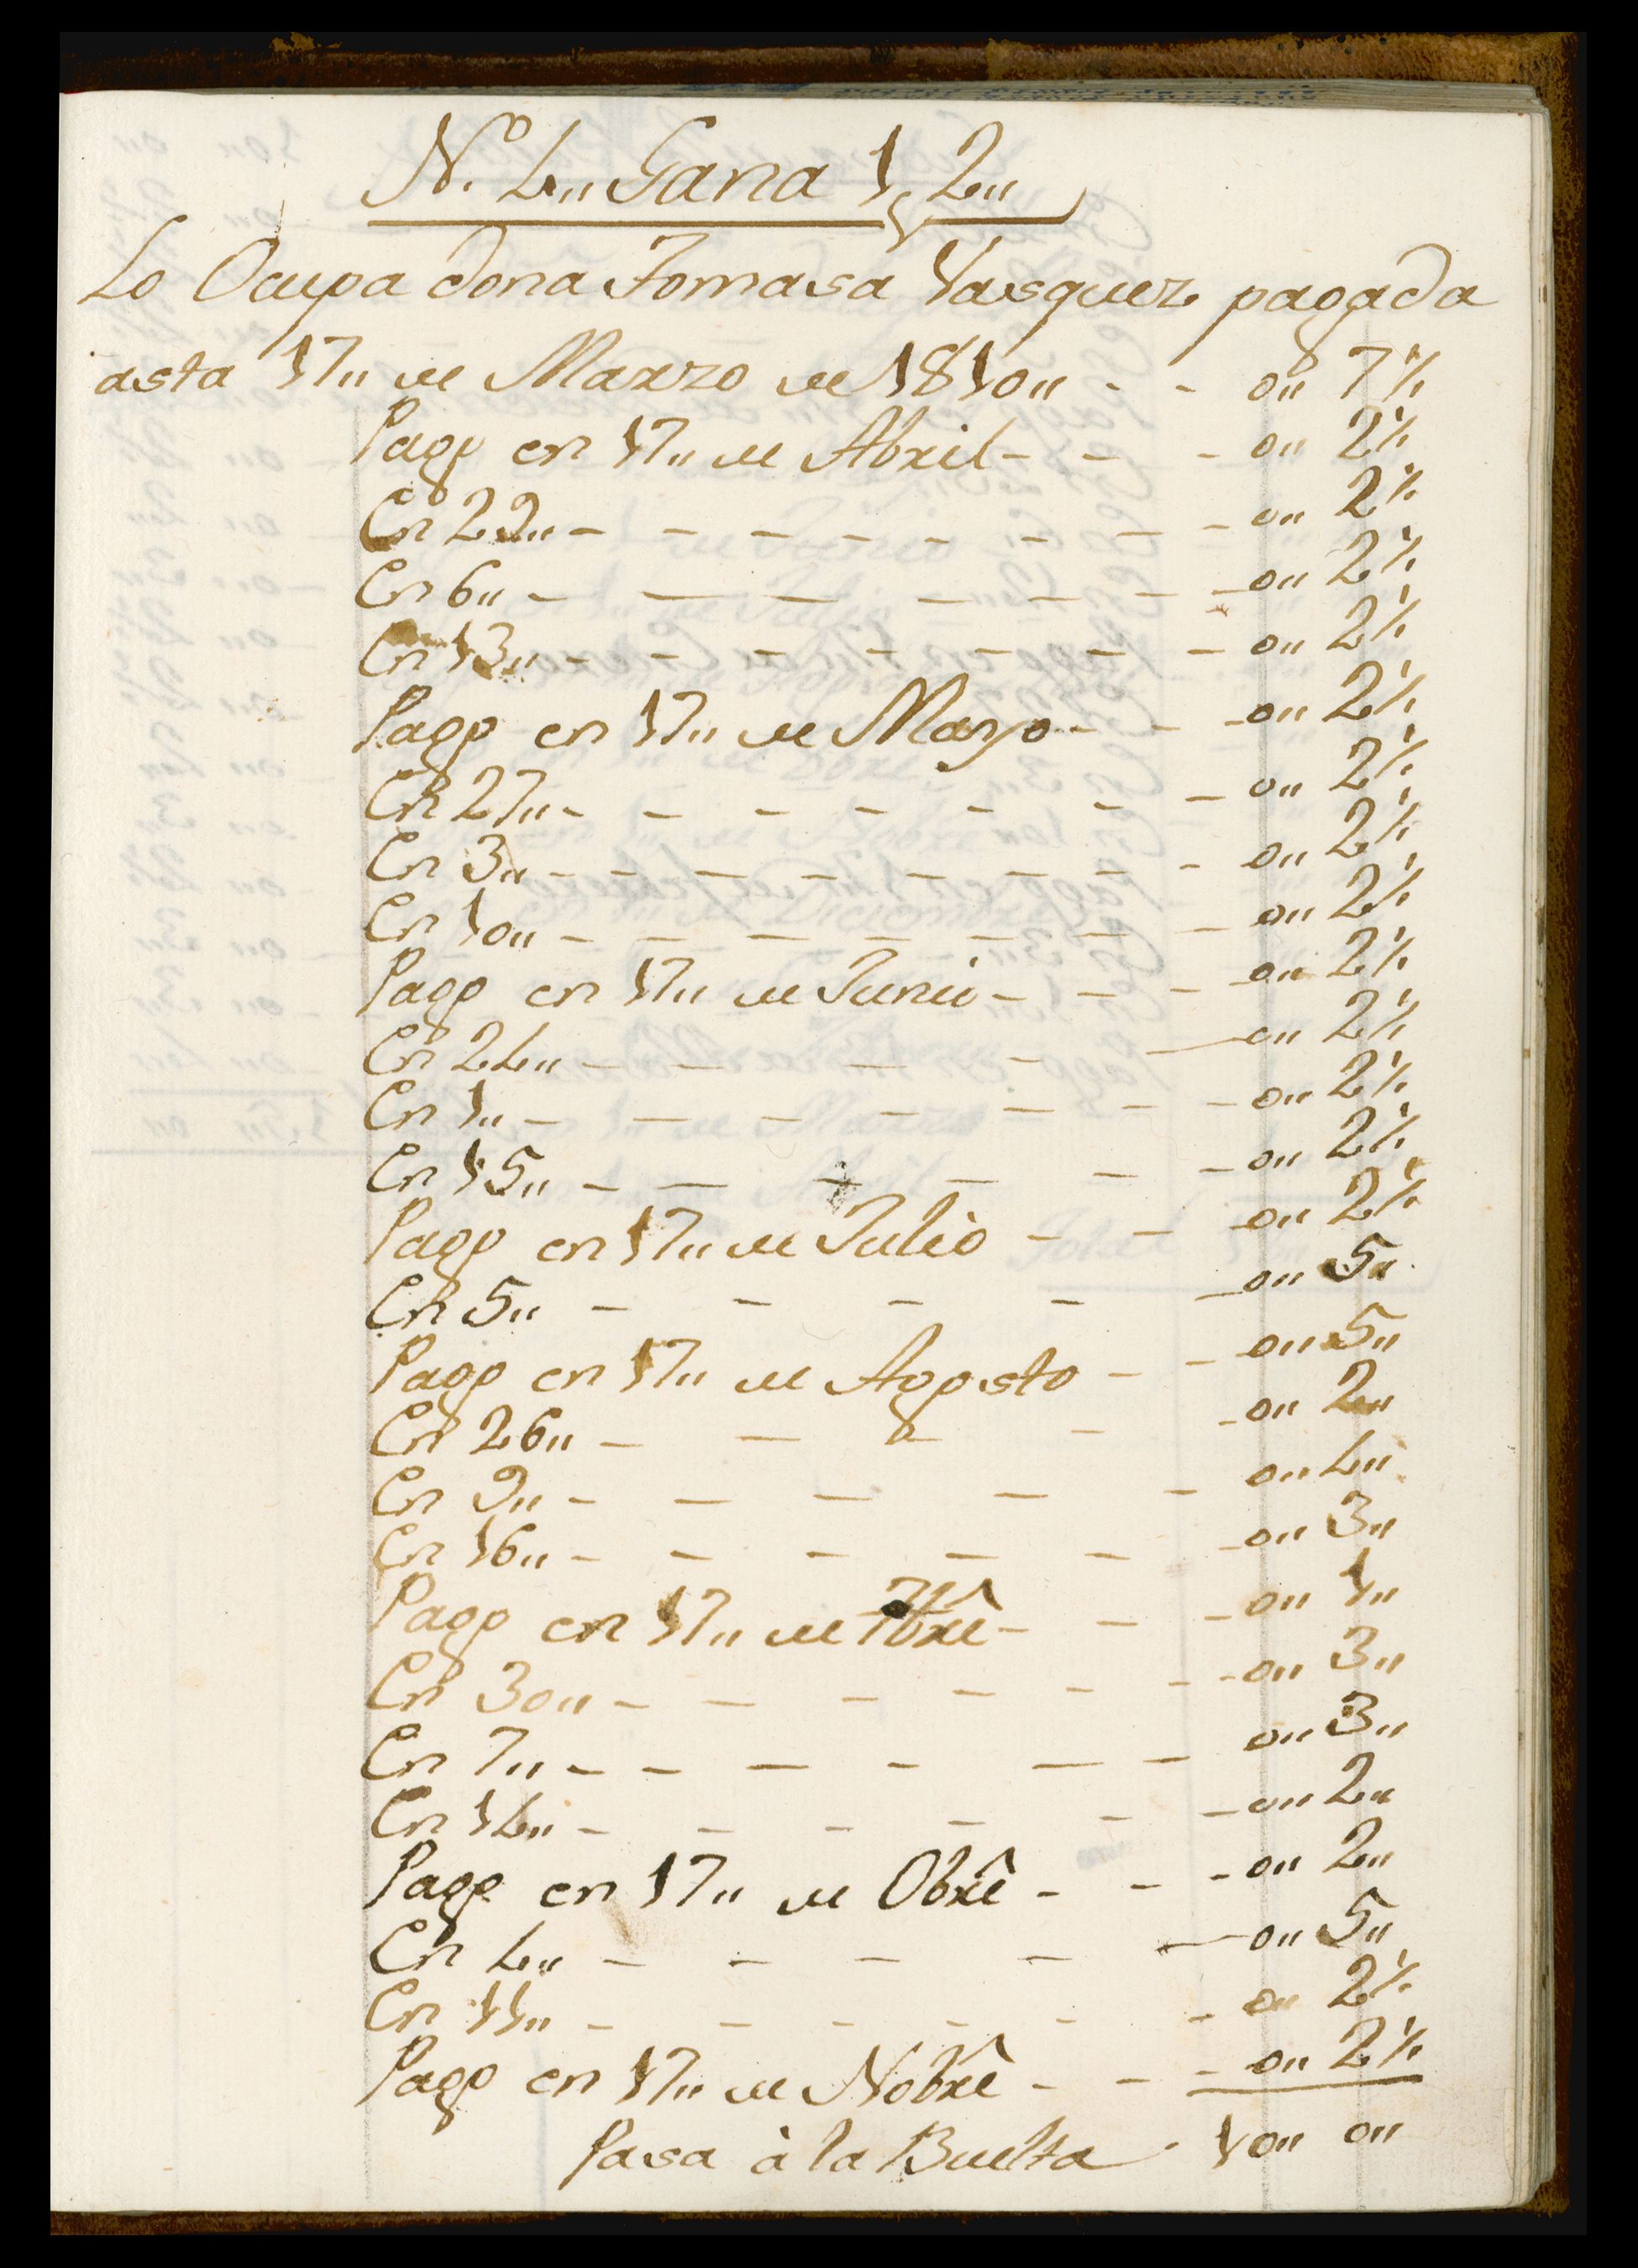 N.º 4,, Gana 1,,2,,
Lo Ocupa dona Tomasa Vasquez pagada
asta 17,, de Marzo de 1810,, - - 0,, 7½
Pago en 17,, de Abril - - - 0,, 2½
En 29,, - - - - - - - - 0,, 2½
En 6,, - - - - - - - 0,, 2½
En 13,, - - - - - - - 0,, 2½
Pago en 17,, de Mayo - - - 0,, 2½
En 27,, - - - - - - - 0,, 2½
En 3,, - - - - - - - - 0,, 2½
En 10,, - - - - - - - 0,, 2½
Pago en 17,, de Junio - - - 0,, 2½
En 24,, - - - - - 0,, 2½
En 1,, - - - - - - - 0,, 2½
En 15,, - - - - - - 0,, 2½
Pago en 17,, de Julio - - - 0,, 2½
En 5,, - - - - - 0,, 5,,
Pago en 17,, de Agosto - - 0,, 5,,
En 26,, - - - - - 0,, 2,,
En 9,, - - - - - 0,, 4,,
En 16,, - - - - - - 0,, 3,,
Pago en 17,, de 7bre - - - 0,, 1,,
En 30,, - - - - - - - 0,, 3,,
En 7,, - - - - - - 0,, 3,,
En 14,, - - - - - - 0,, 2,,
Pago en 17,, de Obre - - - 0,, 2,,
En 4,, - - - - - 0,, 5,,
En 11,, - - - - - - 0,, 2½
Pago en 17,, de Nobre - - - 0,, 2½
Pasa à la Buelta - 10,, 0,,